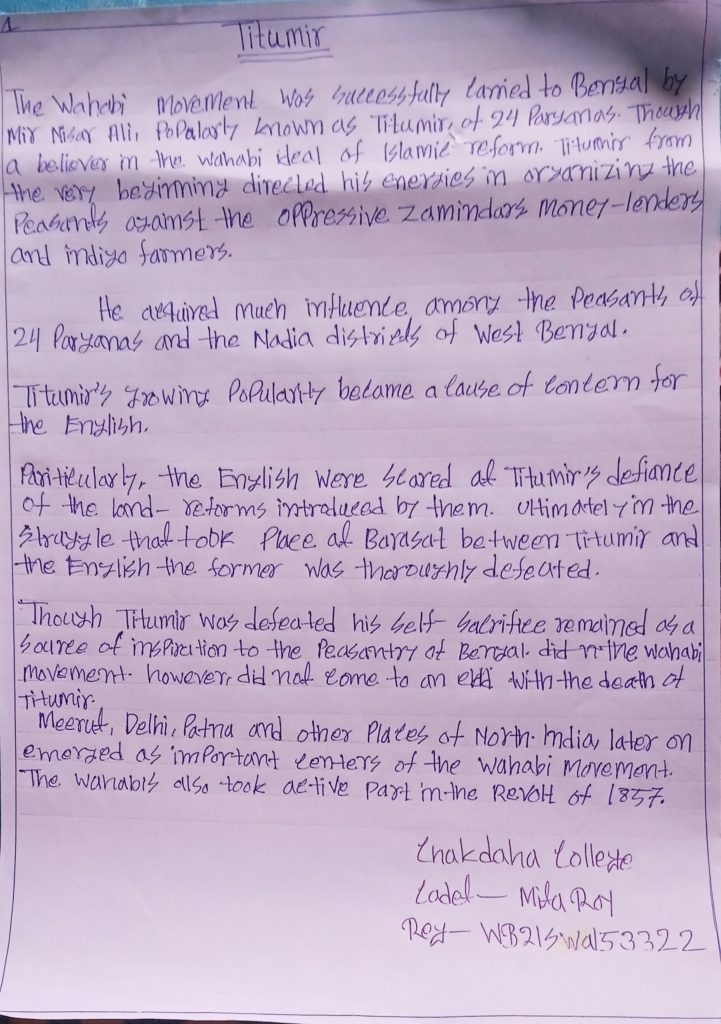 1
Titumir
The Wahabi movement was successfully carried to Bengal by
Mir Nisar Ali, Popalarly known as Titumir, of 24 Parganas. Though
a believer in the wahabi ideal of Islamic reform. Titumir from
the very beginning directed his energies in organizing the
Peasants against the oppressive zamindars money-lenders
and indigo farmers.
He acquired much influence among the Peasants of
24 Parganas and the Nadia districts of West Bengal.
Titumir's growing Popularity became a cause of concern for
the English.
Pariticularly, the English were scared at Titumir's defiance
of the land- reforms introduced by them. Ultimately in the
struggle that took Place at Barasat between Titumir and
the English the former was thoroughly defeated.
Though Titumir was defeated his self- sacrifice remained as a
source of inspiration to the Peasantry of Bengal. did n the wahabi
movement. however, did not come to an end with the death of
Titumir.
Meerut, Delhi, Patna and other Places of North India, later on
emerged as important centers of the Wahabi Movement.
The wahabis also took active Part in the Revolt of 1857.
Chakdaha College
Cadet- Mita Roy
Reg- WB21SWA153322